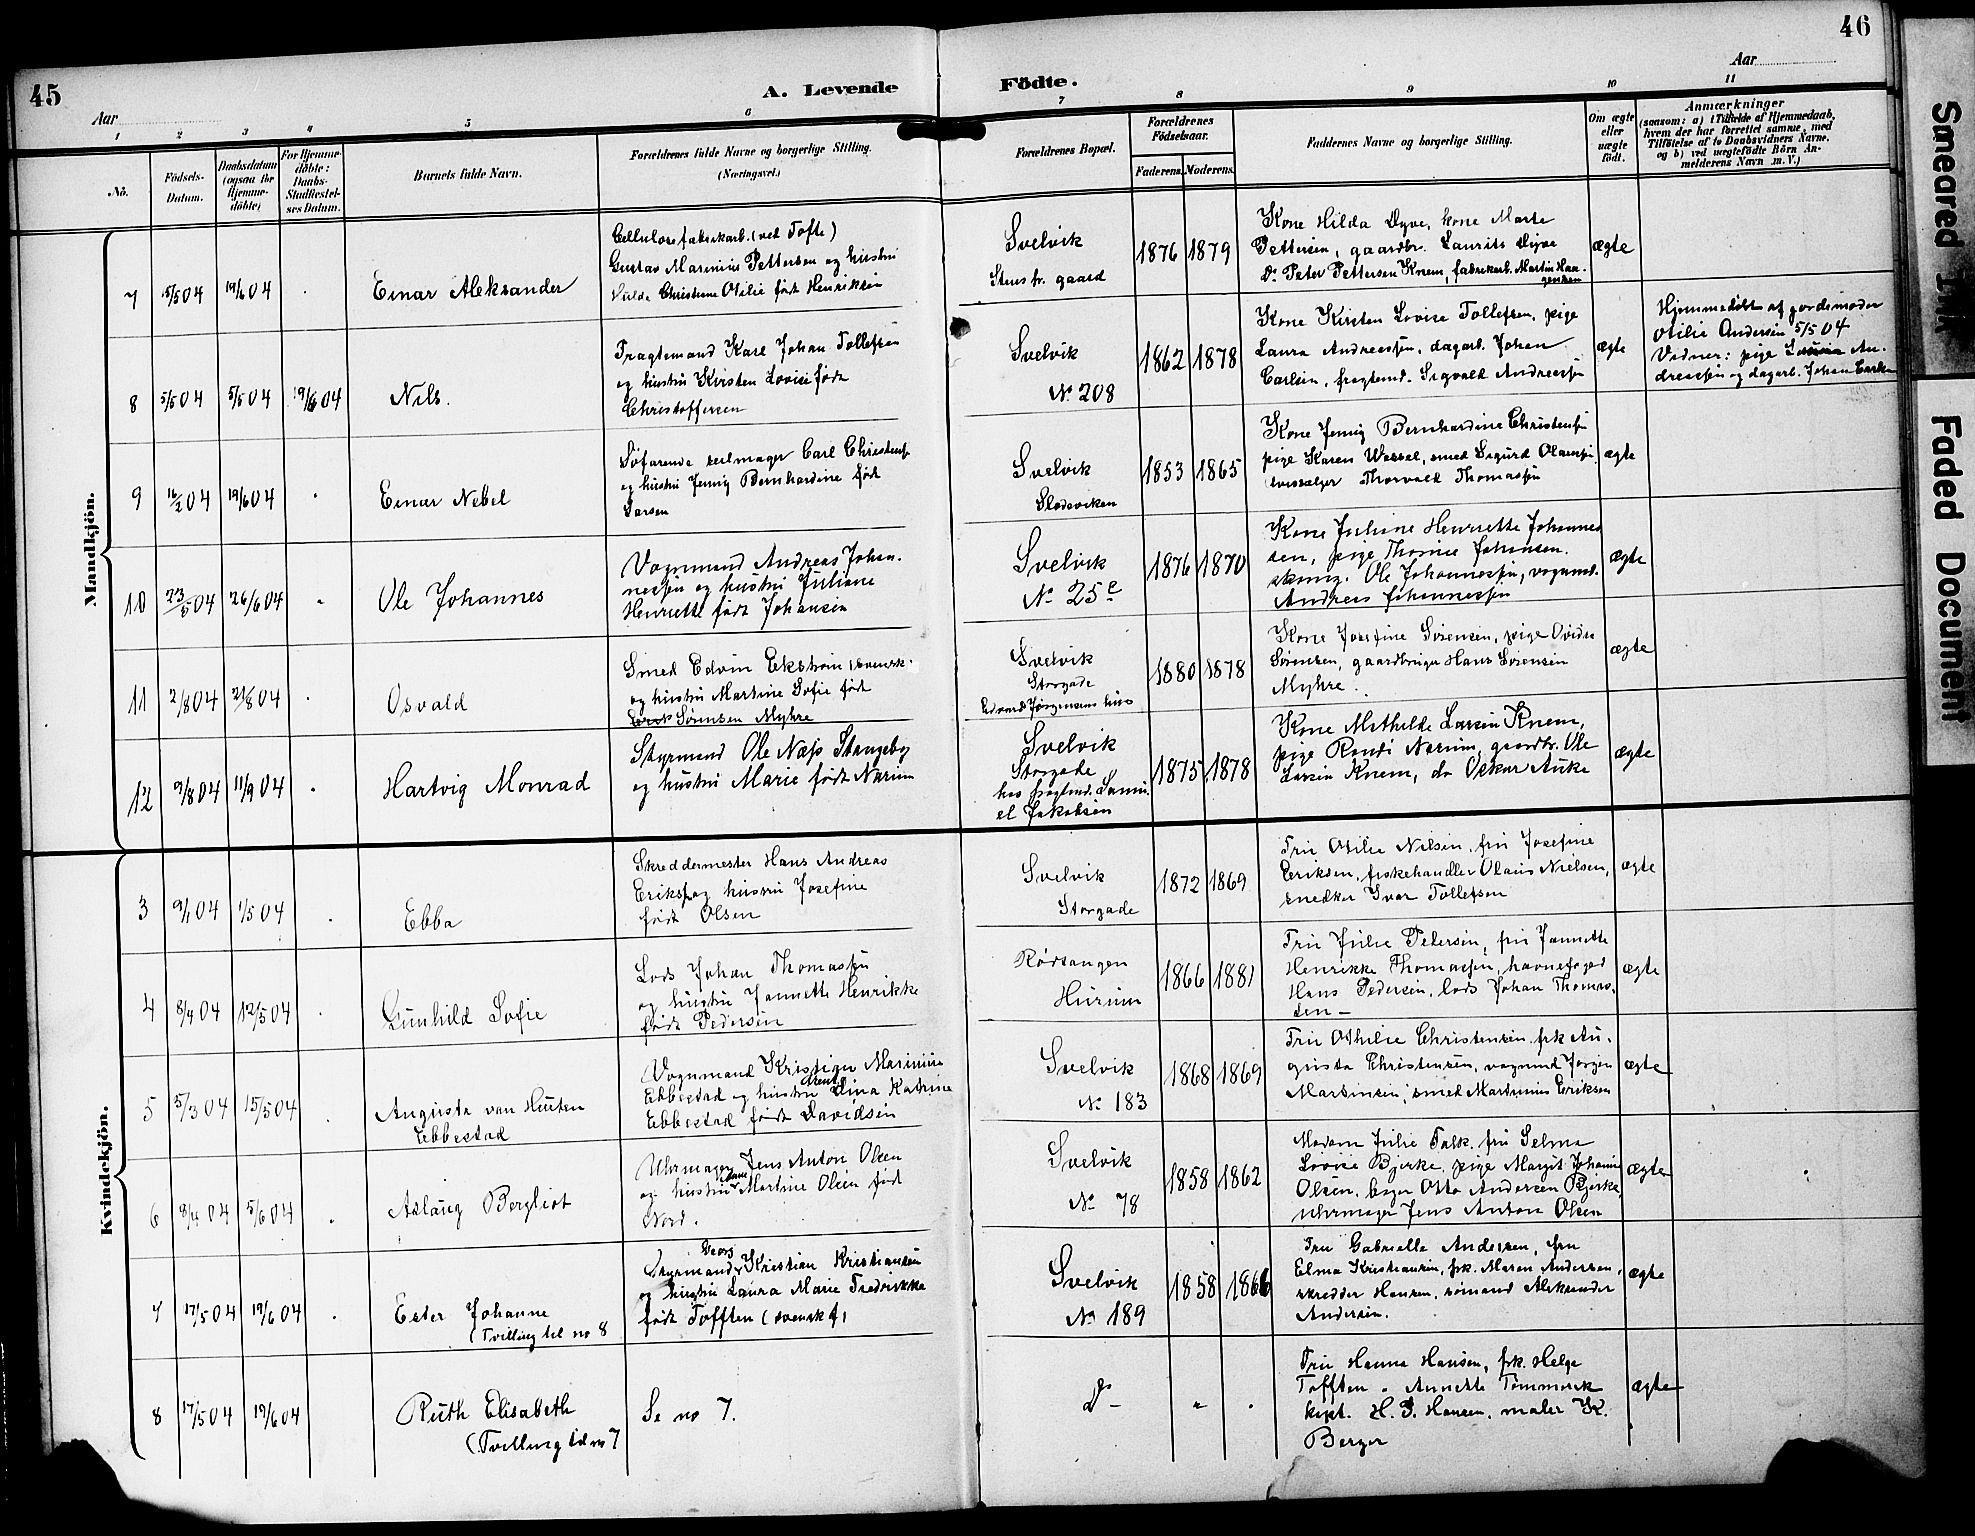 45
46
Aar
A. Levende
Födte.
Aar
1 2 3 4 5 6 7 8 9 10 11
No.
Fødsels-Datum.
Daabsdatum (ogsaa for Hjemme-döbte)
For Hjemme-döbte: Daabs-Stadfæstel-ses Datum.
Barnets fulde Navn.
Forældrenes fulde Navne og borgerlige Stilling. (Næringsvei.)
Forældrenes Bopæl.
Forældrenes Födselsaar.
Faderens. Moderens.
Faddernes Navne og borgerlige Stilling.
Om ægte eller uægte født.
Anmærkninger
(saasom: a) i Tilfælde af Hjemmedaab,
hvem der har forrettet samme, med
Tilføielse af to Daabsvidners Navne.
og b) ved uægtefödte Börn An-
melderens Navn m. V.)
Mandkjön.
7 15/5 04 19/6 04 Einar Aleksander
Cellulosefabrikarb. (ved Tofte)
Gustav Marinius Pettersen og hustru
Hulda Christiane Otilie født Henriksen
Svelvik
gaard
1876 1879
Kone Hilda Dyve, kone Marte
Pettersen, gaardbr. Laurits Dyve
Do Peter Pettersen Knem, fabrikarb. Martin Haa-
gensen
ægte
8 5/5 04 5/5 04 19/6 04 Nils.
Fragtemand Karl Johan Tollefsen
og hustru Kirsten Lovise født
Christoffersen
Svelvik
No 208
1862 1878
Kone Kirsten Lovise Tollefsen, pige
Laura Andreassen, dagarb. Johan
Carlsen, fragtemd. Sigvald Andreassen
ægte
Hjemmedöbt af jordemoder
Otilie Andersen 5/5 04
Vidner: pige Laura An-
dreassen og dagarb. Johan Carlsen
9 16/2 04 19/6 04 Einar Nebel
Søfarende seilmager Carl Christensen
og hustru Jenny Bernhardine født
Larsen
Svelvik
Slodeviken
1853 1865
Kone Jenny Bernhardine Christensen
pige Karen Wessel, smed Sigurd Olausen
Thorvald Thomassen
ægte
10 23/5 04 26/6 04 Ole Johannes
Vognmand Andreas Johan-
nessen og hustru Juliane
Henriette født Johansen
Svelvik
No 25e
1876 1870
Kone Juliane Henriette Johannes
sen, pige Thomine Johansen.
Ole Johannessen, vognmd.
Andreas Johannessen
ægte
11 2/8 04 21/8 04 Osvald
Smed Edvin Ekström (svensk.
og hustru Martine Sofie født
Sörensen Myhre
Svelvik
Storgade
Edvard Jørgensens hus
1880 1878
Kone Josefine Sørensen, pige Ovidia
Sørensen, gaardbruger Hans Sørensen
Myhre.
ægte
12 9/8 04 11/9 04 Hartvig Monrad
Styrmand Ole Næss Stangeby
og hustru Marie født Narum
Svelvik
Storgade
hos fragtmd. Samu-
el Jakobsen
1875 1878
Kone Mathilde Larsen Knem,
pige Randi Narum, gaardbr. Ole
Larsen Knem, do Oskar Auke
ægte
Kvindekjön.
3 9/1 04 1/5 04 Ebba
Skreddermester Hans Andreas
Eriksen og hustru Josefine
født Olsen
Svelvik
Storgade
1872 1869
Fru Otilie Nilsen, fru Josefine
Eriksen, fiskehandler Olaus Nielsen,
snedker Ivar Tollefsen
ægte
4 8/4 04 12/5 04 Gunhild Sofie
Lods Johan Thomassen
og hustru Jannette Henrikke
født Pedersen
Rødtangen
Hurum
1866 1881
Fru Julie Pedersen, fru Jannette
Henrikke Thomassen, havnefoged
Hans Pedersen, lods Johan Thomas-
sen –
ægte
5 5/3 04 15/5 04 Augusta van Hunten
Ebbestad
Vognmand Kristian Marinius
Ebbestad og hustru Lina Katrine
Ebbestad født Davidsen
Svelvik
No 183
1868 1869
Fru Othilie Christensen, frk Au-
gusta Christensen, vognmd Jørgen
Martinsen, smed Martinius Eriksen
ægte
6 8/4 04 5/6 04 Aslaug Bergliot
Uhrmager Jens Anton Olsen
og hustru Martine Olsen født
Nord.
Svelvik
No 78
1858 1862
Madam Julie Falk, fru Selma
Lovise Bjerke, pige Margit Johanne
Olsen, bager Otto Andersen Bjerke,
uhrmager Jens Anton Olsen
ægte
7 17/5 04 19/6 04 Ester Johanne
(Tvilling til no 8
Georg
Styrmand Kristian Kristiansen
og hustru Laura Marie Fredrikke
født Tofften (svensk)
Svelvik
No 189
1858 1866
Fru Gabrielle Andersen, fru
Elma Kristiansen, frk. Maren Andersen,
skredder Hansen, sömand Aleksander
Andersen.
ægte
8 17/5 04 19/6 04 Ruth Elisabeth
(Tvilling til no 7
Se no 7.
Do – " "
Fru Hanna Hansen, frk. Helga
Tofften, Annette Tømmerek
kapt. H. S. Hansen, maler K.
Berger
ægte
Smeared Ink
Faded Document